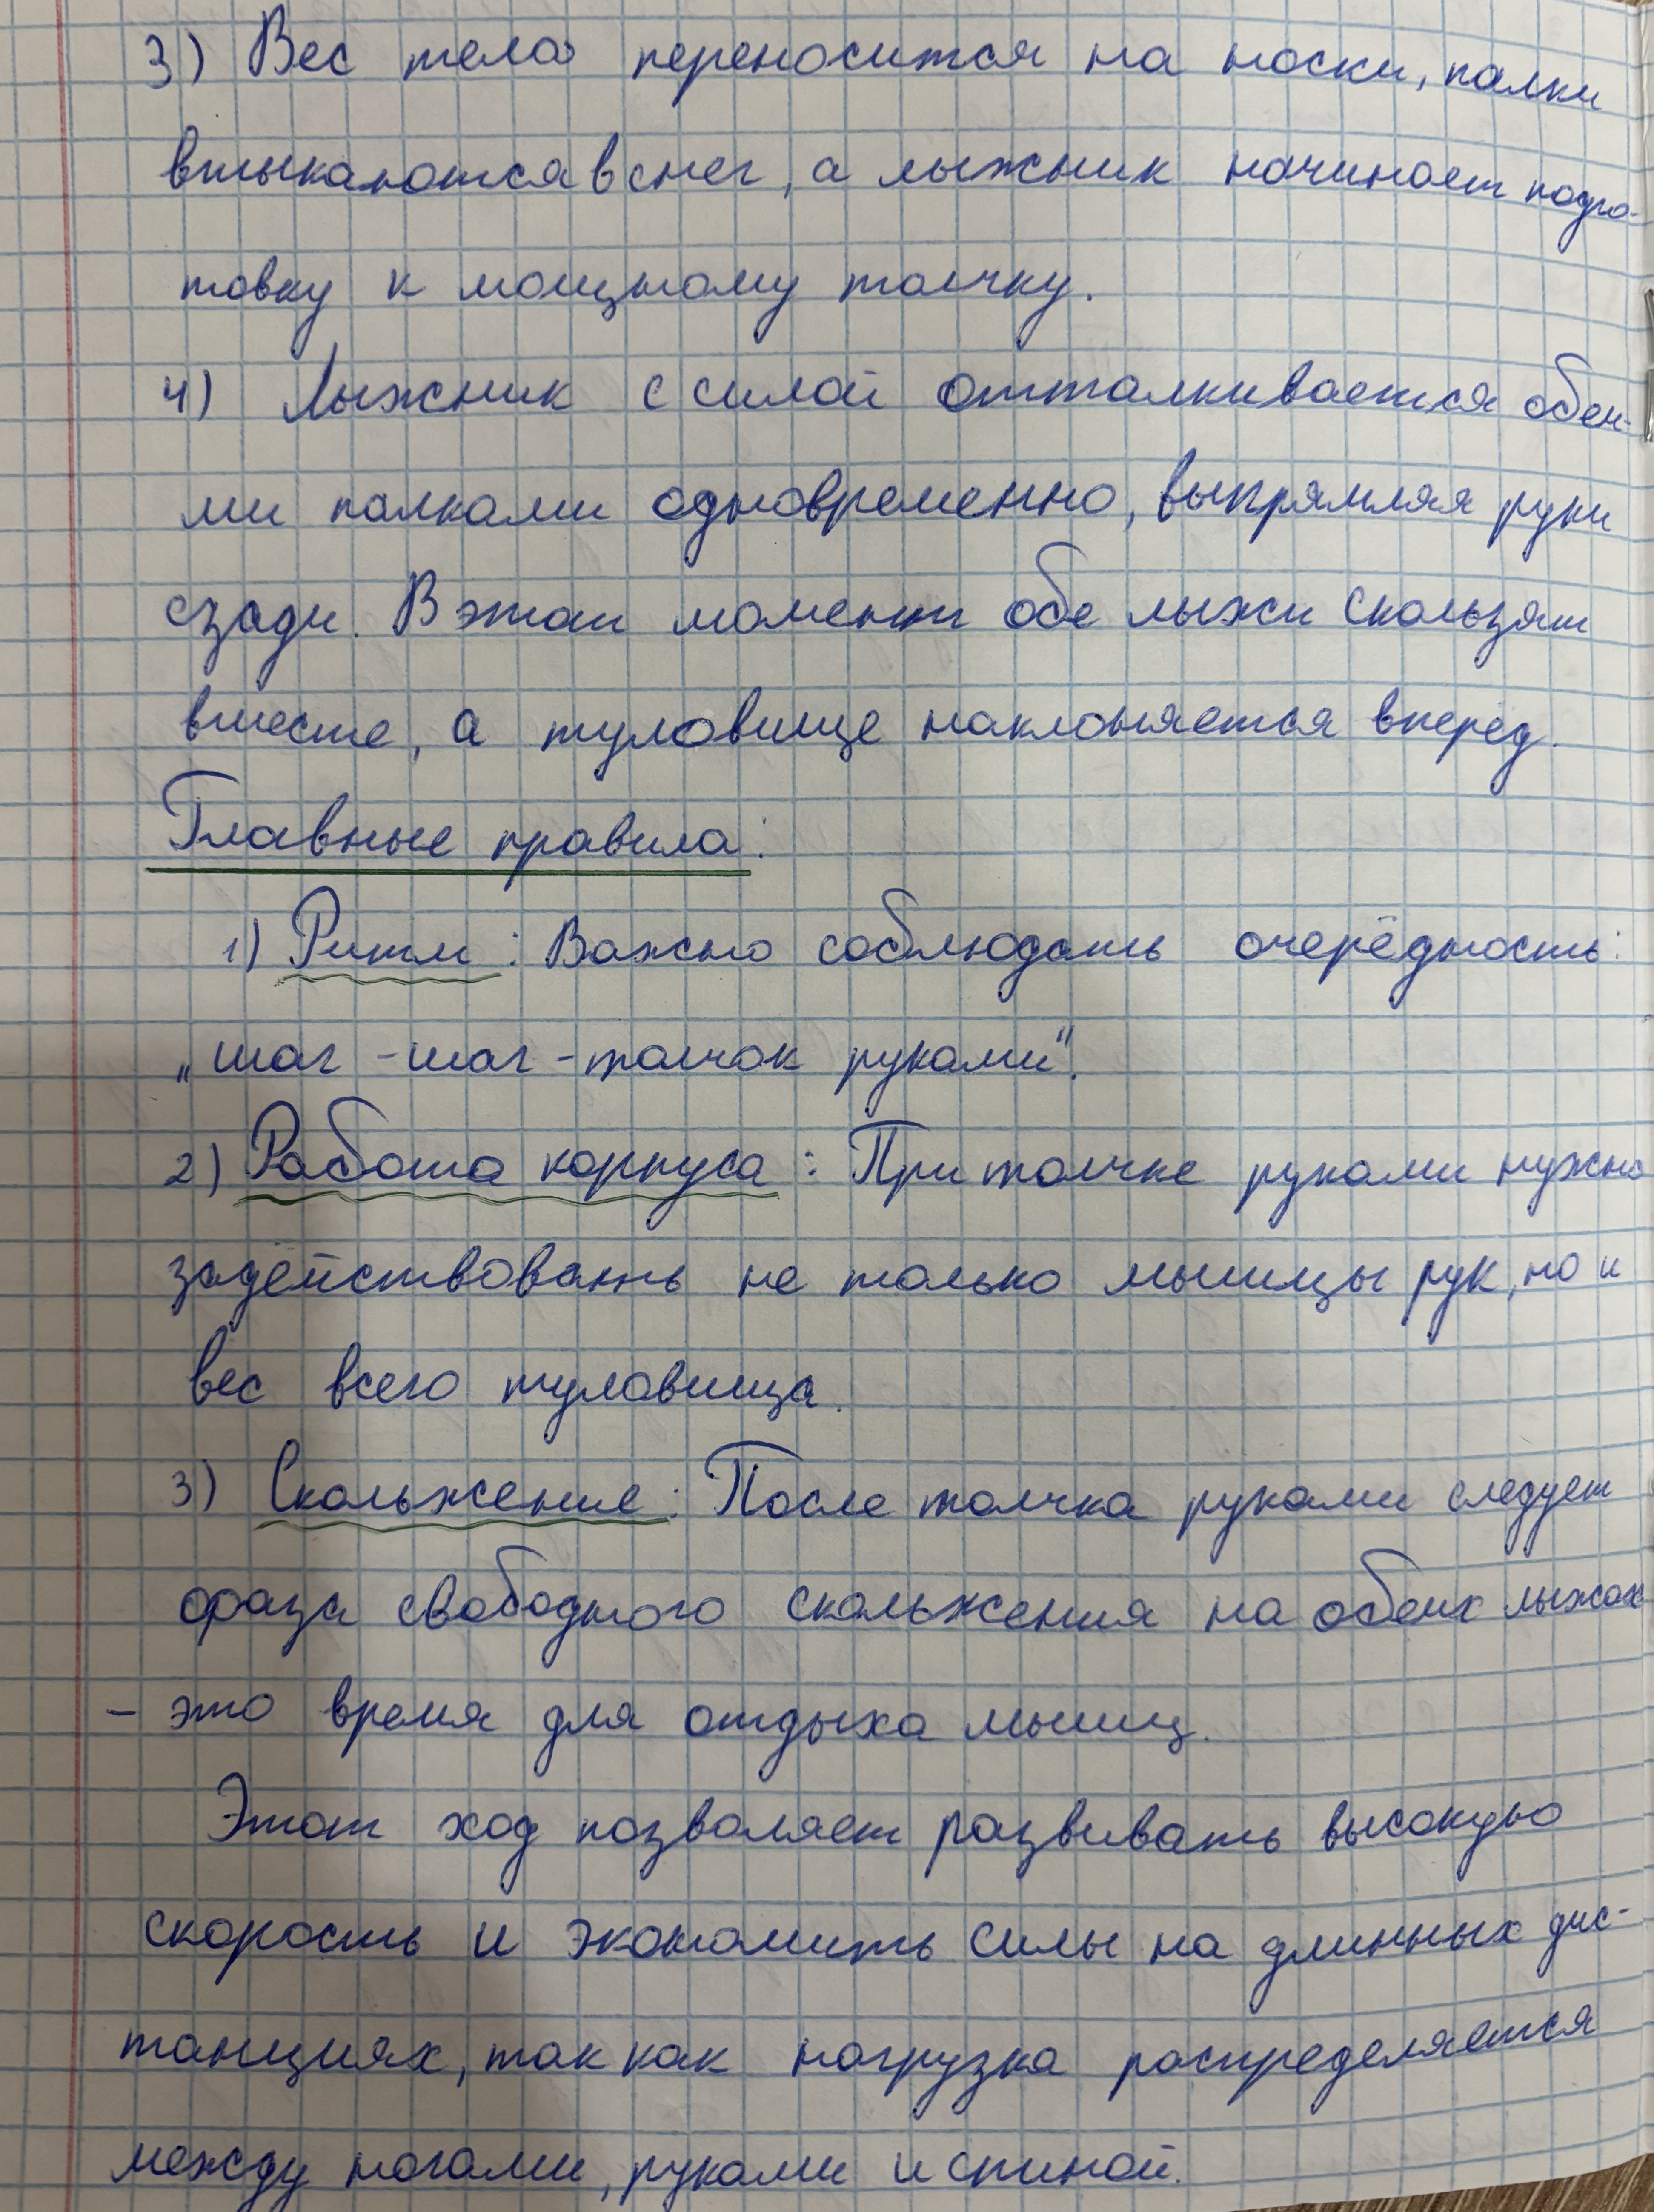 3) Вес тела переносится на носки, палки
втыкаются в снег, а лыжник начинает подго-
товку к мощному толчку.
4) Лыжник с силой отталкивается обеи-
ми палками одновременно, выпрямляя руки
сзади. В этот момент обе лыжи скользят
вместе, а туловище наклоняется вперёд.
Главные правила:
1) Ритм: Важно соблюдать очерёдность:
„шаг - шаг - толчок руками".
2) Работа корпуса: При толчке руками нужно
задействовать не только мышцы рук, но и
вес всего туловища.
3) Скольжение: После толчка руками следует
фаза свободного скольжения на обеих лыжах
- это время для отдыха мышц.
Этот ход позволяет развивать высокую
скорость и экономить силы на длинных дис-
танциях, так как нагрузка распределяется
между ногами, руками и спиной.